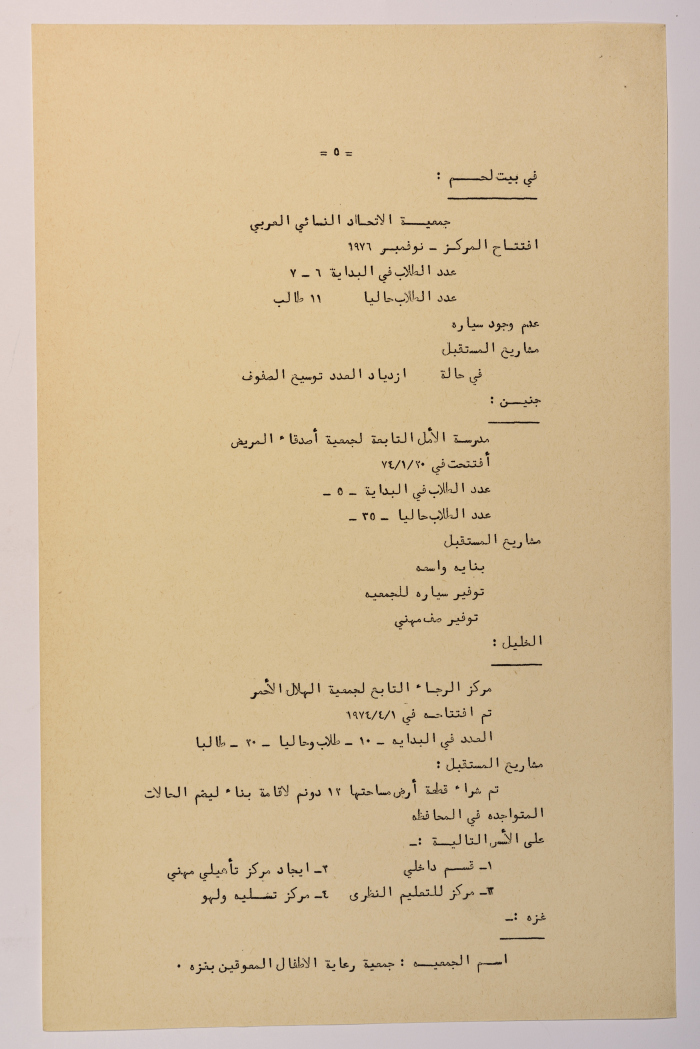 = ٥ =
في بيت لحـــم :
جمعيـــة الاتحاد النسائي العربي
افتتاح المركز ـ نوفمبر ١٩٧٦
عدد الطلاب في البداية ٦ ـ ٧
عدد الطلاب حاليا ١١ طالب
عدم وجود سياره
مشاريع المستقبل
في حالة ازدياد العدد توسيع الصفوف
جنيـــن :
مدرسة الأمل التابعة لجمعية أصدقاء المريض
أفتتحت في ٧٤/١/٢٠
عدد الطلاب في البداية ـ ٥ ـ
عدد الطلاب حاليا ـ ٣٥ ـ
مشاريع المستقبل
بنايه واسعه
توفير سياره للجمعيه
توفير صف مهني
الخليل :
مركز الرجاء التابع لجمعية الهلال الأحمر
تم افتتاحـه في ١٩٧٤/٤/١
العدد في البدايه ـ ١٠ ـ طلاب وحاليا ـ ٢٠ ـ طالبا
مشاريع المستقبل :
تم شراء قطعة أرض مساحتها ١٢ دونم لاقامة بناء ليضم الحالات
المتواجده في المحافظه
على الأسس التاليـــة :ـ
١ـ قسـم داخلي ٢ـ ايجاد مركز تأهيلي مهني
٣ـ مركز للتعليم النظرى ٤ـ مركز تسـليه ولهو
غزه :ـ
اسـم الجمعيـــه : جمعية رعاية الاطفال المعوقين بغزه ٠